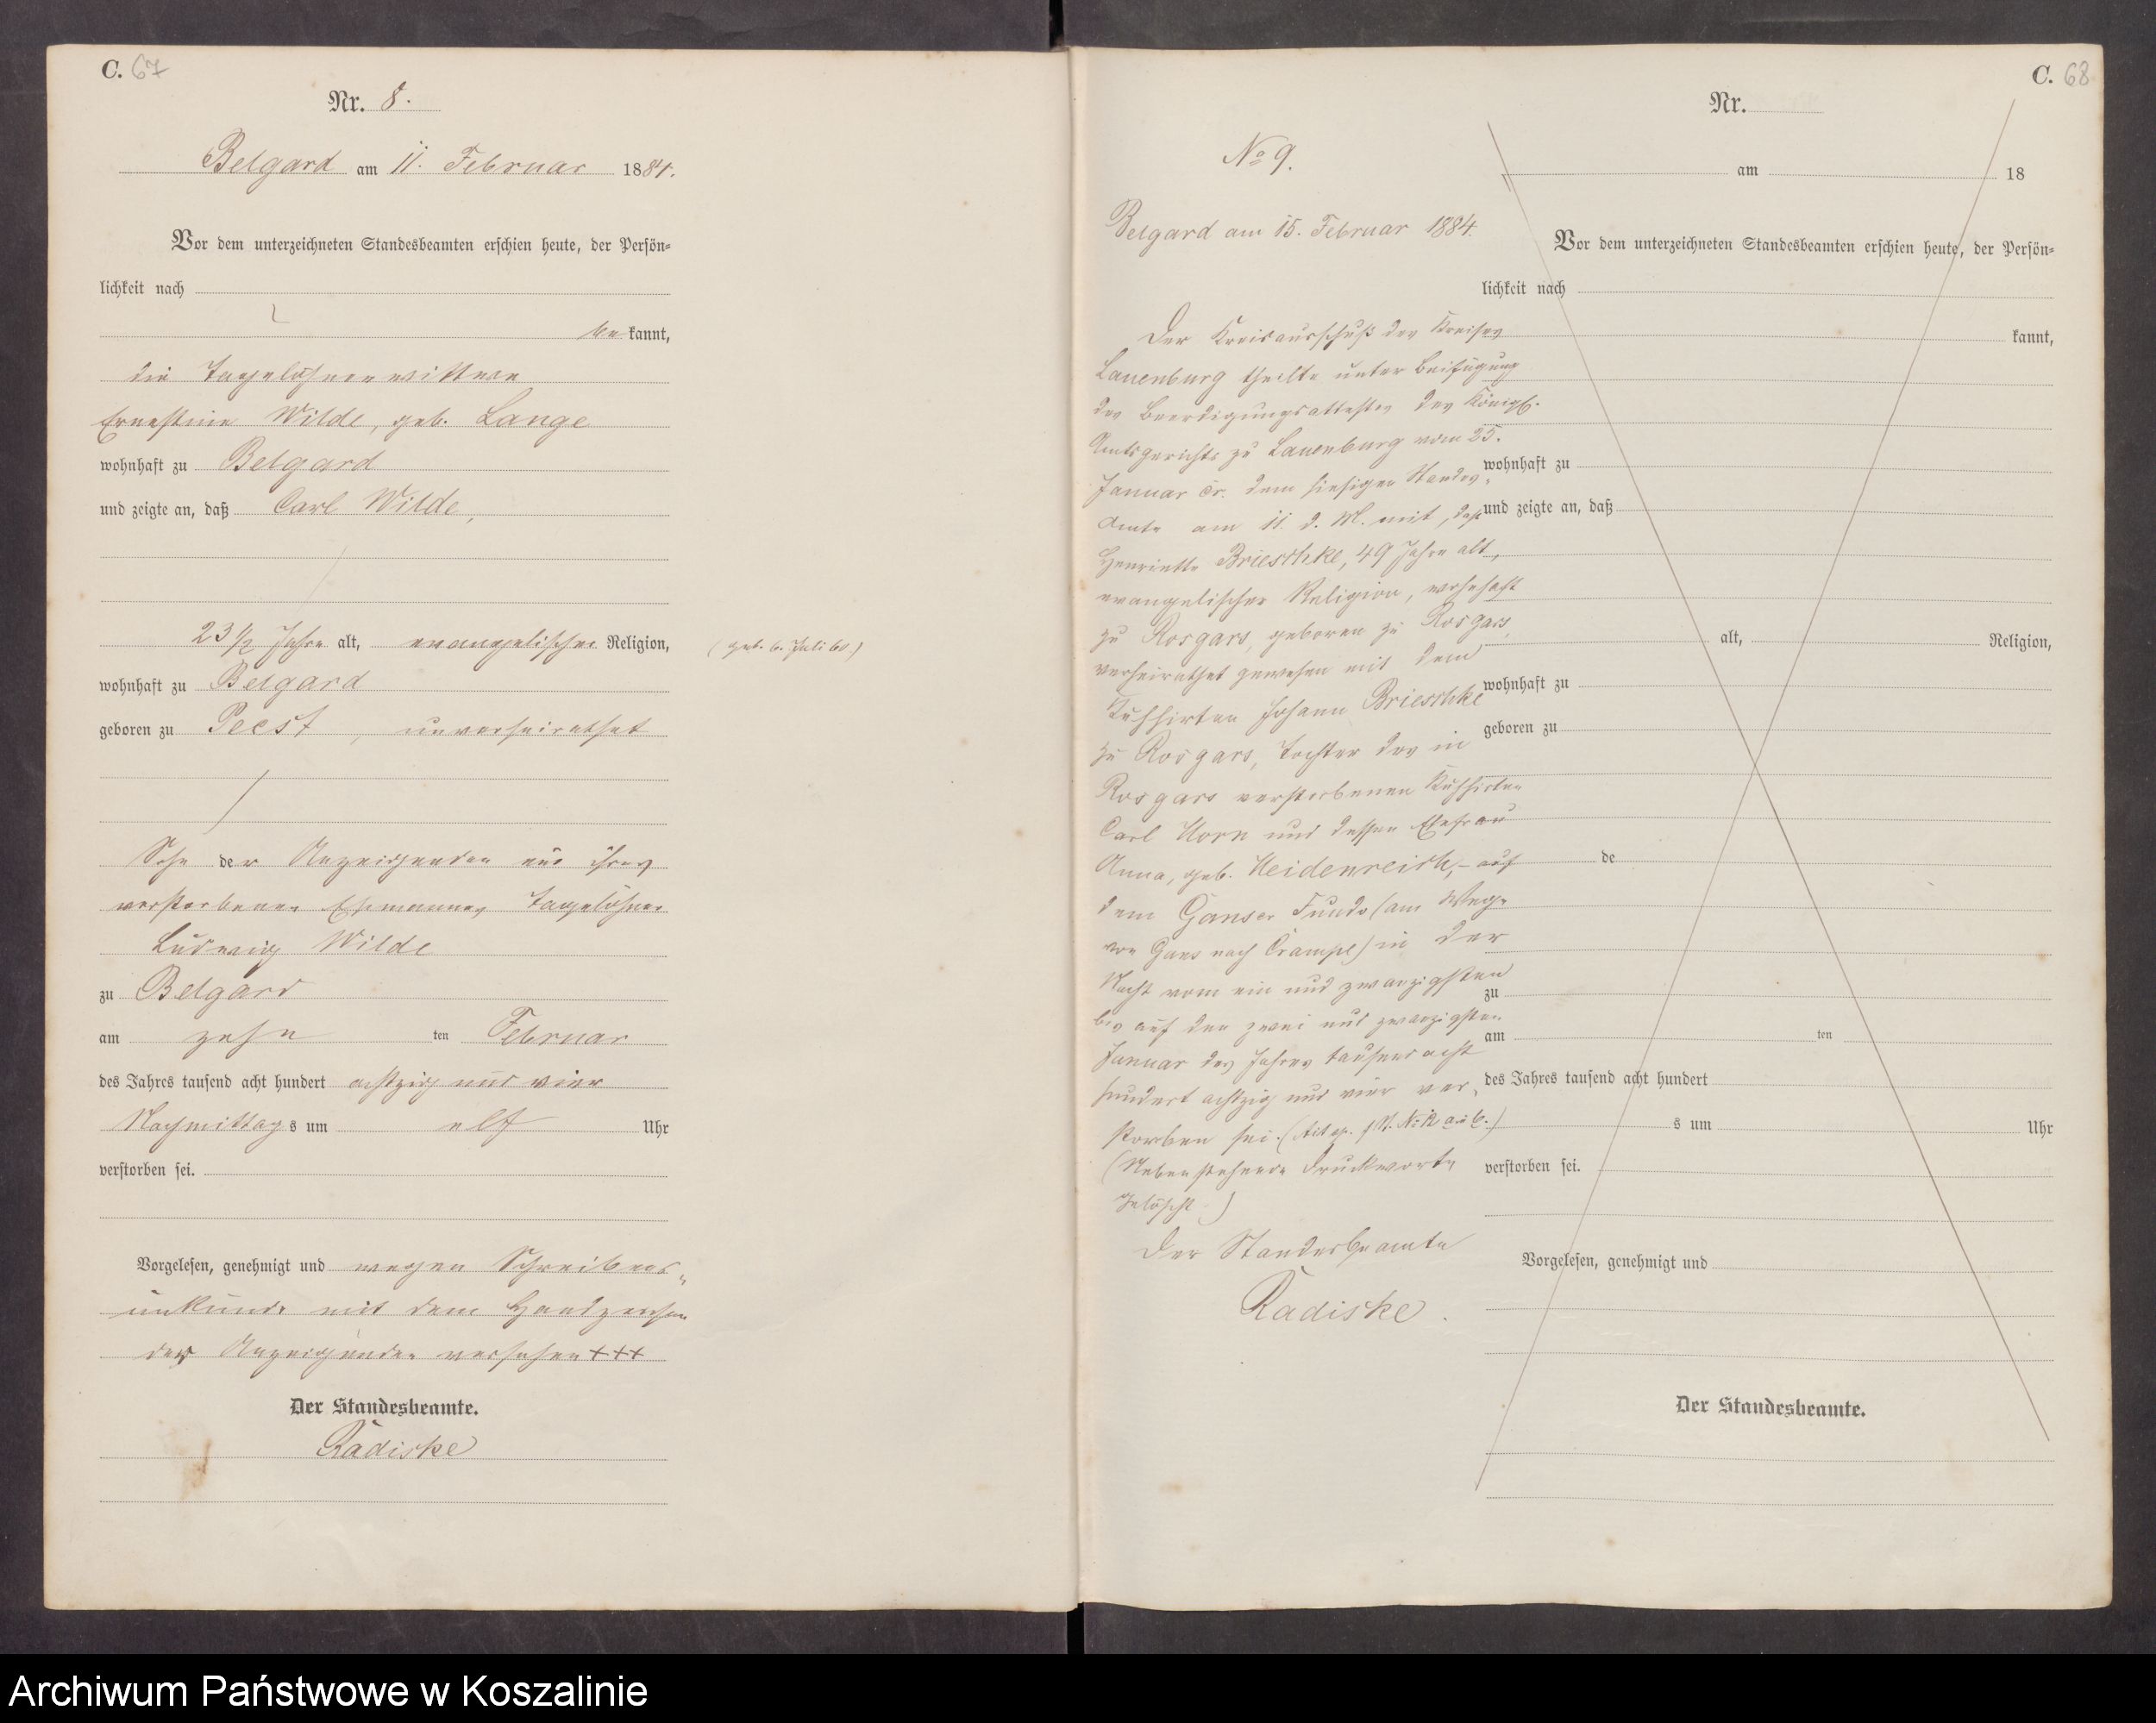 C. 67
Nr. 8.
Belgard am 11. Februar 1884.
Vor dem unterzeichneten Standesbeamten erschien heute, der Persön=
lichkeit nach
be kannt,
die Tagelöhnerwittwe
Ernestine Wilde, geb. Lange
wohnhaft zu Belgard
und zeigte an, daß Carl Wilde,
23 1/2 Jahre alt, evangelischer Religion, (geb. 6. Juli 60.)
wohnhaft zu Belgard
geboren zu Peest, unverheirathet
Sohn der Anzeigenden und ihres
verstorbenen Ehemannes Tagelöhner
Ludwig Wilde
zu Belgard
am zehn ten Februar
des Jahres tausend acht hundert achtzig und vier
Nachmittag s um elf Uhr
verstorben sei.
Vorgelesen, genehmigt und wegen Schreibens=
unkunde mit dem Handzeichen
der Anzeigenden versehen +++
Der Standesbeamte.
Radiske
C. 68
No 9.
Belgard am 15. Februar 1884.
Der Kreisausschuß des Kreises
Lauenburg theilte unter Beifügung
des Beerdigungsattestes des Königl.
Amtsgerichts zu Lauenburg vom 25.
Januar cr. dem hiesigen Standes=
Amte am 11. d. M. mit, daß
Henriette Brieschke, 49 Jahre alt,
evangelischer Religion, wohnhaft
zu Rosgars, geboren zu Rosgars,
verheirathet gewesen mit dem
Kuhhirten Johann Brieschke
zu Rosgars, Tochter des in
Rosgars verstorbenen Kuhhirten
Carl Horn und dessen Ehefrau
Anna, geb. Heidenreich, - auf
dem Ganser Fundo (am Wege
von Gans nach Crampe) in der
Nacht vom ein und zwanzigsten
bis auf den zwei und zwanzigsten
Januar des Jahres tausend acht
hundert achtzig und vier ver=
storben sei.
(Nebenstehende Druckworte
gelöscht.)
Der Standesbeamte
Radiske.
Nr.
am 18
Vor dem unterzeichneten Standesbeamten erschien heute, der Persön=
lichkeit nach
kannt,
wohnhaft zu
und zeigte an, daß
alt, Religion,
wohnhaft zu
geboren zu
de
zu
am ten
des Jahres tausend acht hundert
s um Uhr
verstorben sei.
Vorgelesen, genehmigt und
Der Standesbeamte.
Archiwum Państwowe w Koszalinie